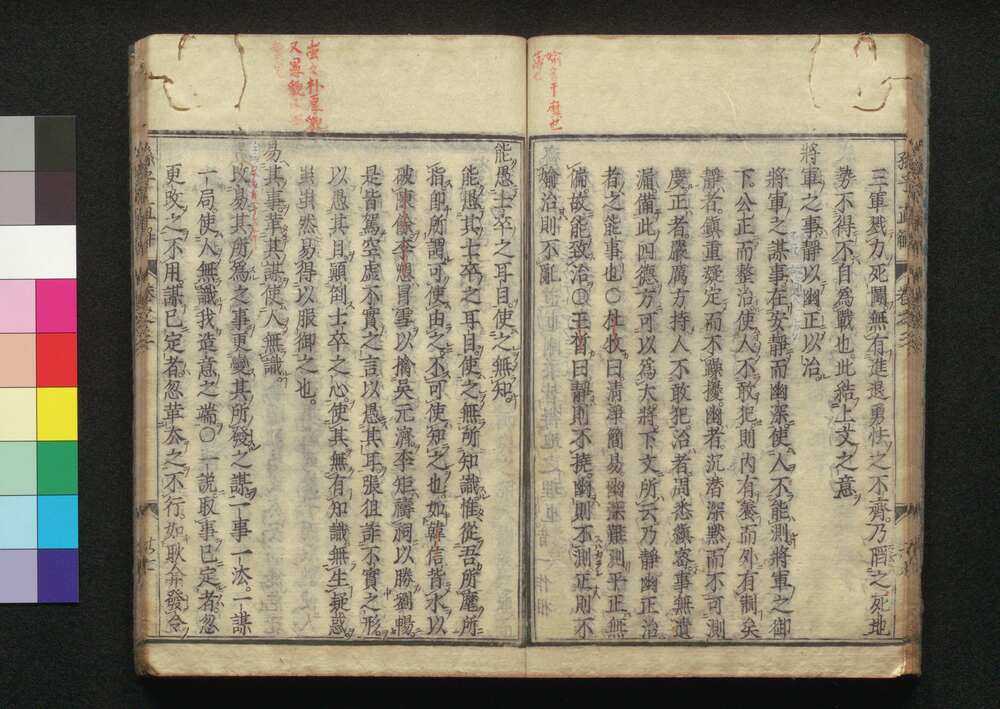 三軍戮力死鬪無有進退勇怯之不齊乃陷之死地
勢不得不自爲戰也此結上文之意
將軍之事靜以幽正以治
將軍之謀事在安靜而幽深使人不能測將軍之御
下公正而整治使人不敢犯則內有養而外有制矣
靜者鎮重凝定而不躁擾幽者沉潛深默而不可測
度正者嚴厲方持人不敢犯治者周悉縝密事無遺
漏備此四德方可以爲大將下文所云乃靜幽正治
者之能事也〇杜牧曰清淨簡易幽深難測平正無
偏故能致治〇王晳曰靜則不撓幽則不測正則不
媮治則不亂
能愚士卒之耳目使之無知
能愚其士卒之耳目使之無所知識惟從吾所麾所
指卽所謂可使由之不可使知之也如韓信背水以
破陳餘李愬冒雪以擒吳元濟李矩禱祠以勝劉暢
是皆駕空虛不實之言以愚其耳張狙詐不實之形
以愚其目顚倒士卒之心使其無有知識無生疑惑
其然易得以服御之也
易其事革其謀使人無識
改易其所爲之事更變其所發之謀一事一法一謀
一局使人無識我造意之端〇一說取事已定者忽
更改之不用謀已定者忽革去之不行如耿弇發令